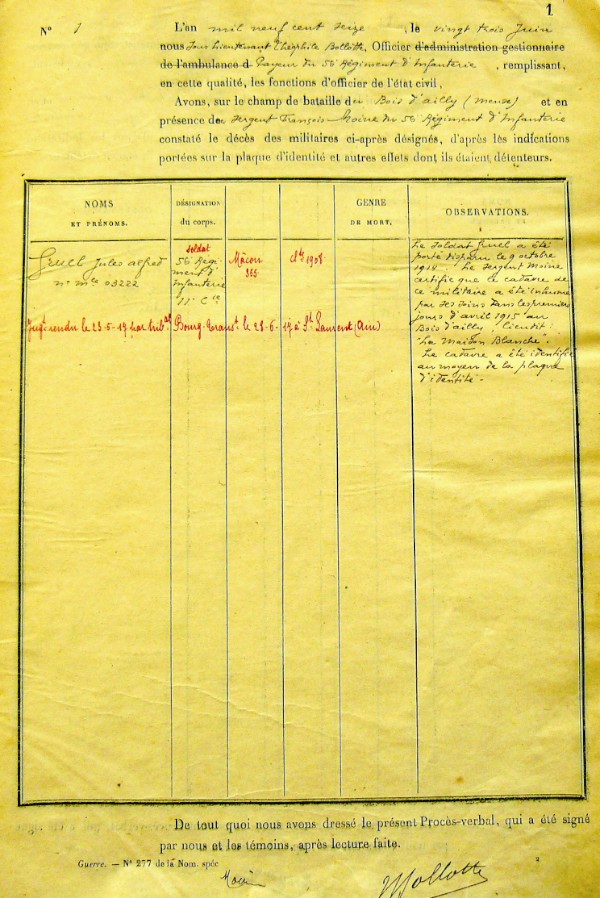 1
Nº 1 L'an mil neuf cent seize, le vingt trois Juin
nous Sous Lieutenant Théophile Bollotte, Officier d'administration gestionnaire
de l'ambulance d Payeur du 56 Régiment d'Infanterie, remplissant,
en cette qualité, les fonctions d'officier de l'état civil,
Avons, sur le champ de bataille du Bois d'ailly (Meuse) et en
présence de Sergent François Moine du 56 Régiment d'Infanterie
constaté le décès des militaires ci-après désignés, d'après les indications
portées sur la plaque d'identité et autres effets dont ils étaient détenteurs.
NOMS
ET PRÉNOMS.
DÉSIGNATION
du corps.
GENRE
DE MORT.
OBSERVATIONS.
Gruel Jules alfred
nº mle 03222
soldat
56 Régi-
ment d'
Infanterie
11e Cie
Mâcon
Cl. 1908
Le soldat Gruel a été
porté disparu le 9 octobre
1914. Le sergent Moine
certifie que le cadavre de
ce militaire a été inhumé
par ses soins dans les premiers
jours d'avril 1915 au
Bois d'ailly, lieudit:
"La Maison Blanche".
Le cadavre a été identifié
au moyen de la plaque
d'identité.
Jugt rendu le 23-5-17 par trib. Bourg. Transt. le 21-6-17 à St Laurent (Ain)
De tout quoi nous avons dressé le présent Procès-verbal, qui a été signé
par nous et les témoins, après lecture faite.
Guerre. — Nº 277 de la Nom. spéc
2
Bollotte